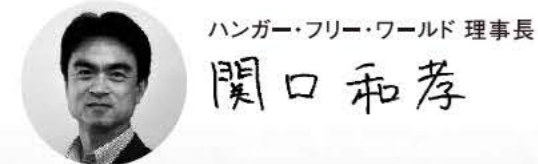 ハンガー・フリー・ワールド 理事長
関口 和孝